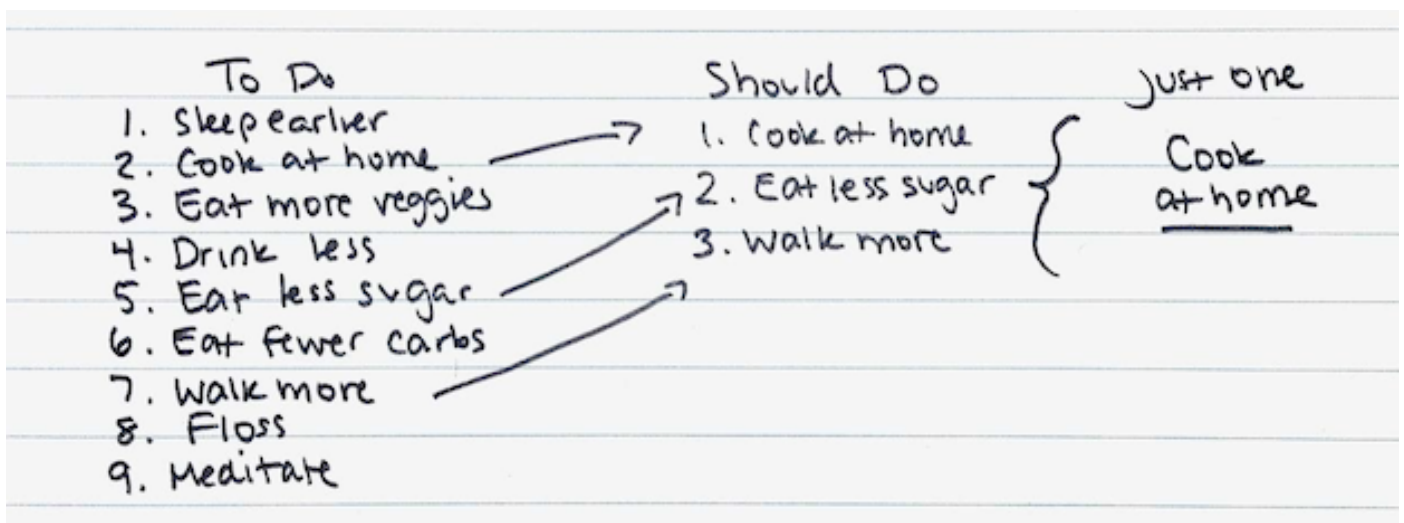 To Do
1. Sleep earlier
2. Cook at home
3. Eat more veggies
4. Drink less
5. Eat less sugar
6. Eat fewer carbs
7. Walk more
8. Floss
9. Meditate
Should Do
1. Cook at home
2. Eat less sugar
3. Walk more
Just one
Cook
at home